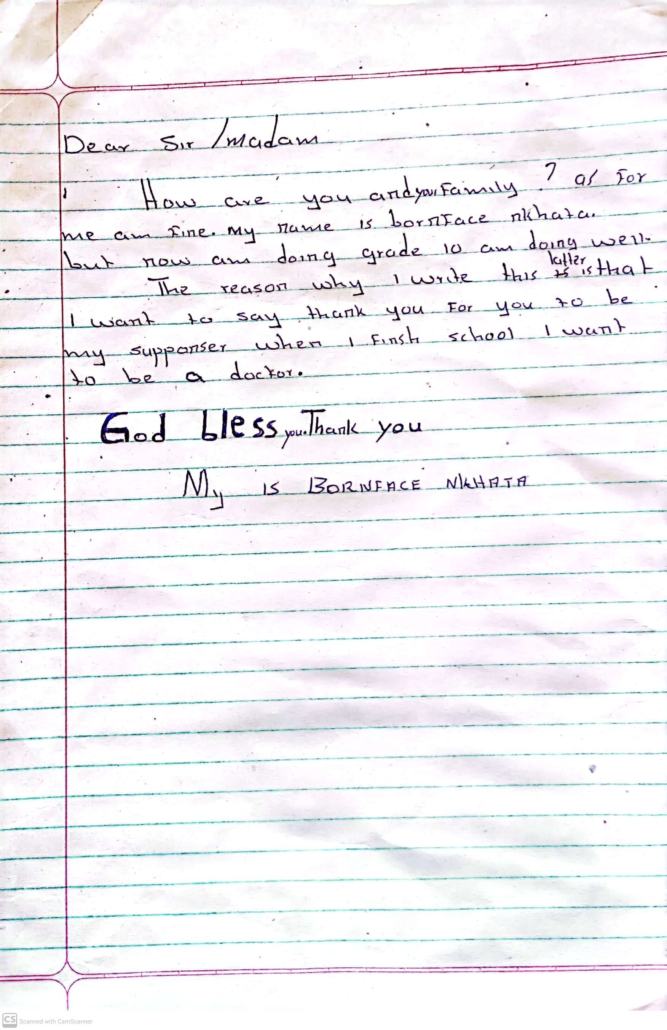 Dear Sir /madam
How are you and your Family ? as For
me am Fine. My name is bornFace nkhata.
but now am doing grade 10 am doing well.
The reason why I write this latter is that
I want to say thank you For you to be
my supponser when I Finsh school I want
to be a doctor.
God bless you. Thank you
My is BORNFACE NKHATA
CS Scanned with CamScanner